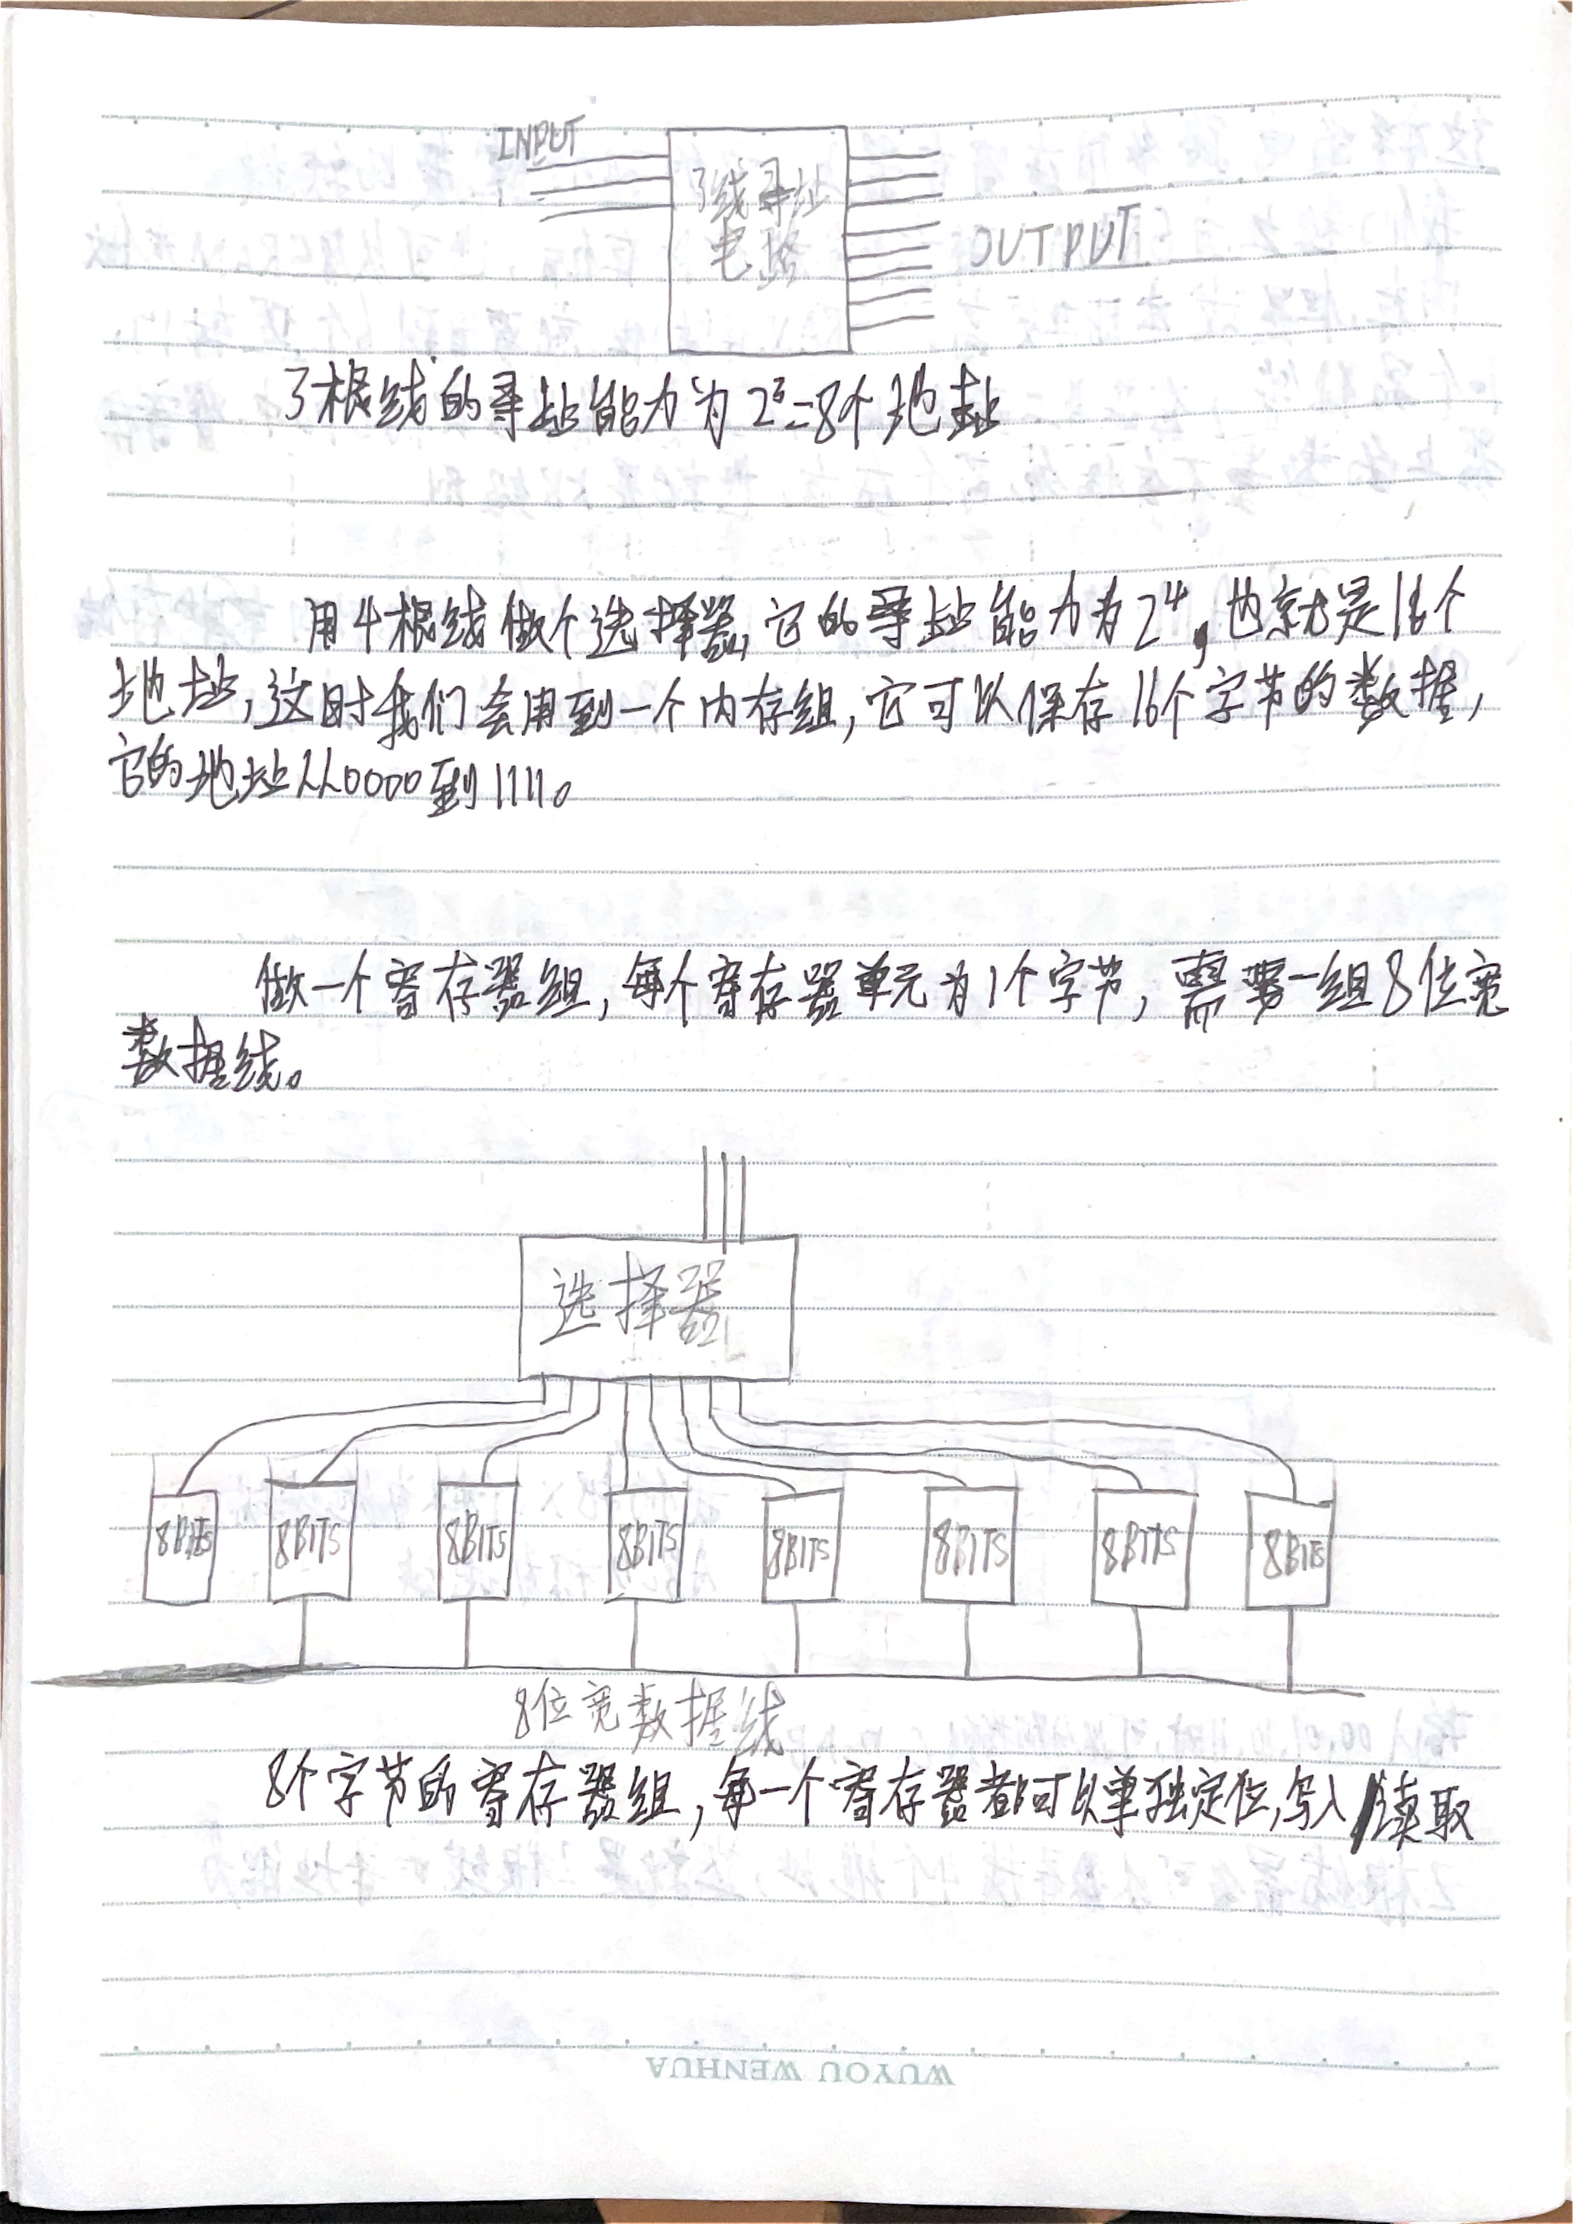 INPUT
3线寻址
电路
OUTPUT
3根线的寻址能力为2³=8个地址
用4根线做个选择器,它的寻址能力为2⁴,也就是16个
地址,这时我们会用到一个内存组,它可以保存16个字节的数据,
它的地址从0000到1111。
做一个寄存器组,每个寄存器单元为1个字节,需要一组8位宽
数据线。
选择器
8BITS 8BITS 8BITS 8BITS 8BITS 8BITS 8BITS 8BITS
8位宽数据线
8个字节的寄存器组,每一个寄存器都可以单独定位,写入/读取
WUYOU WENHUA